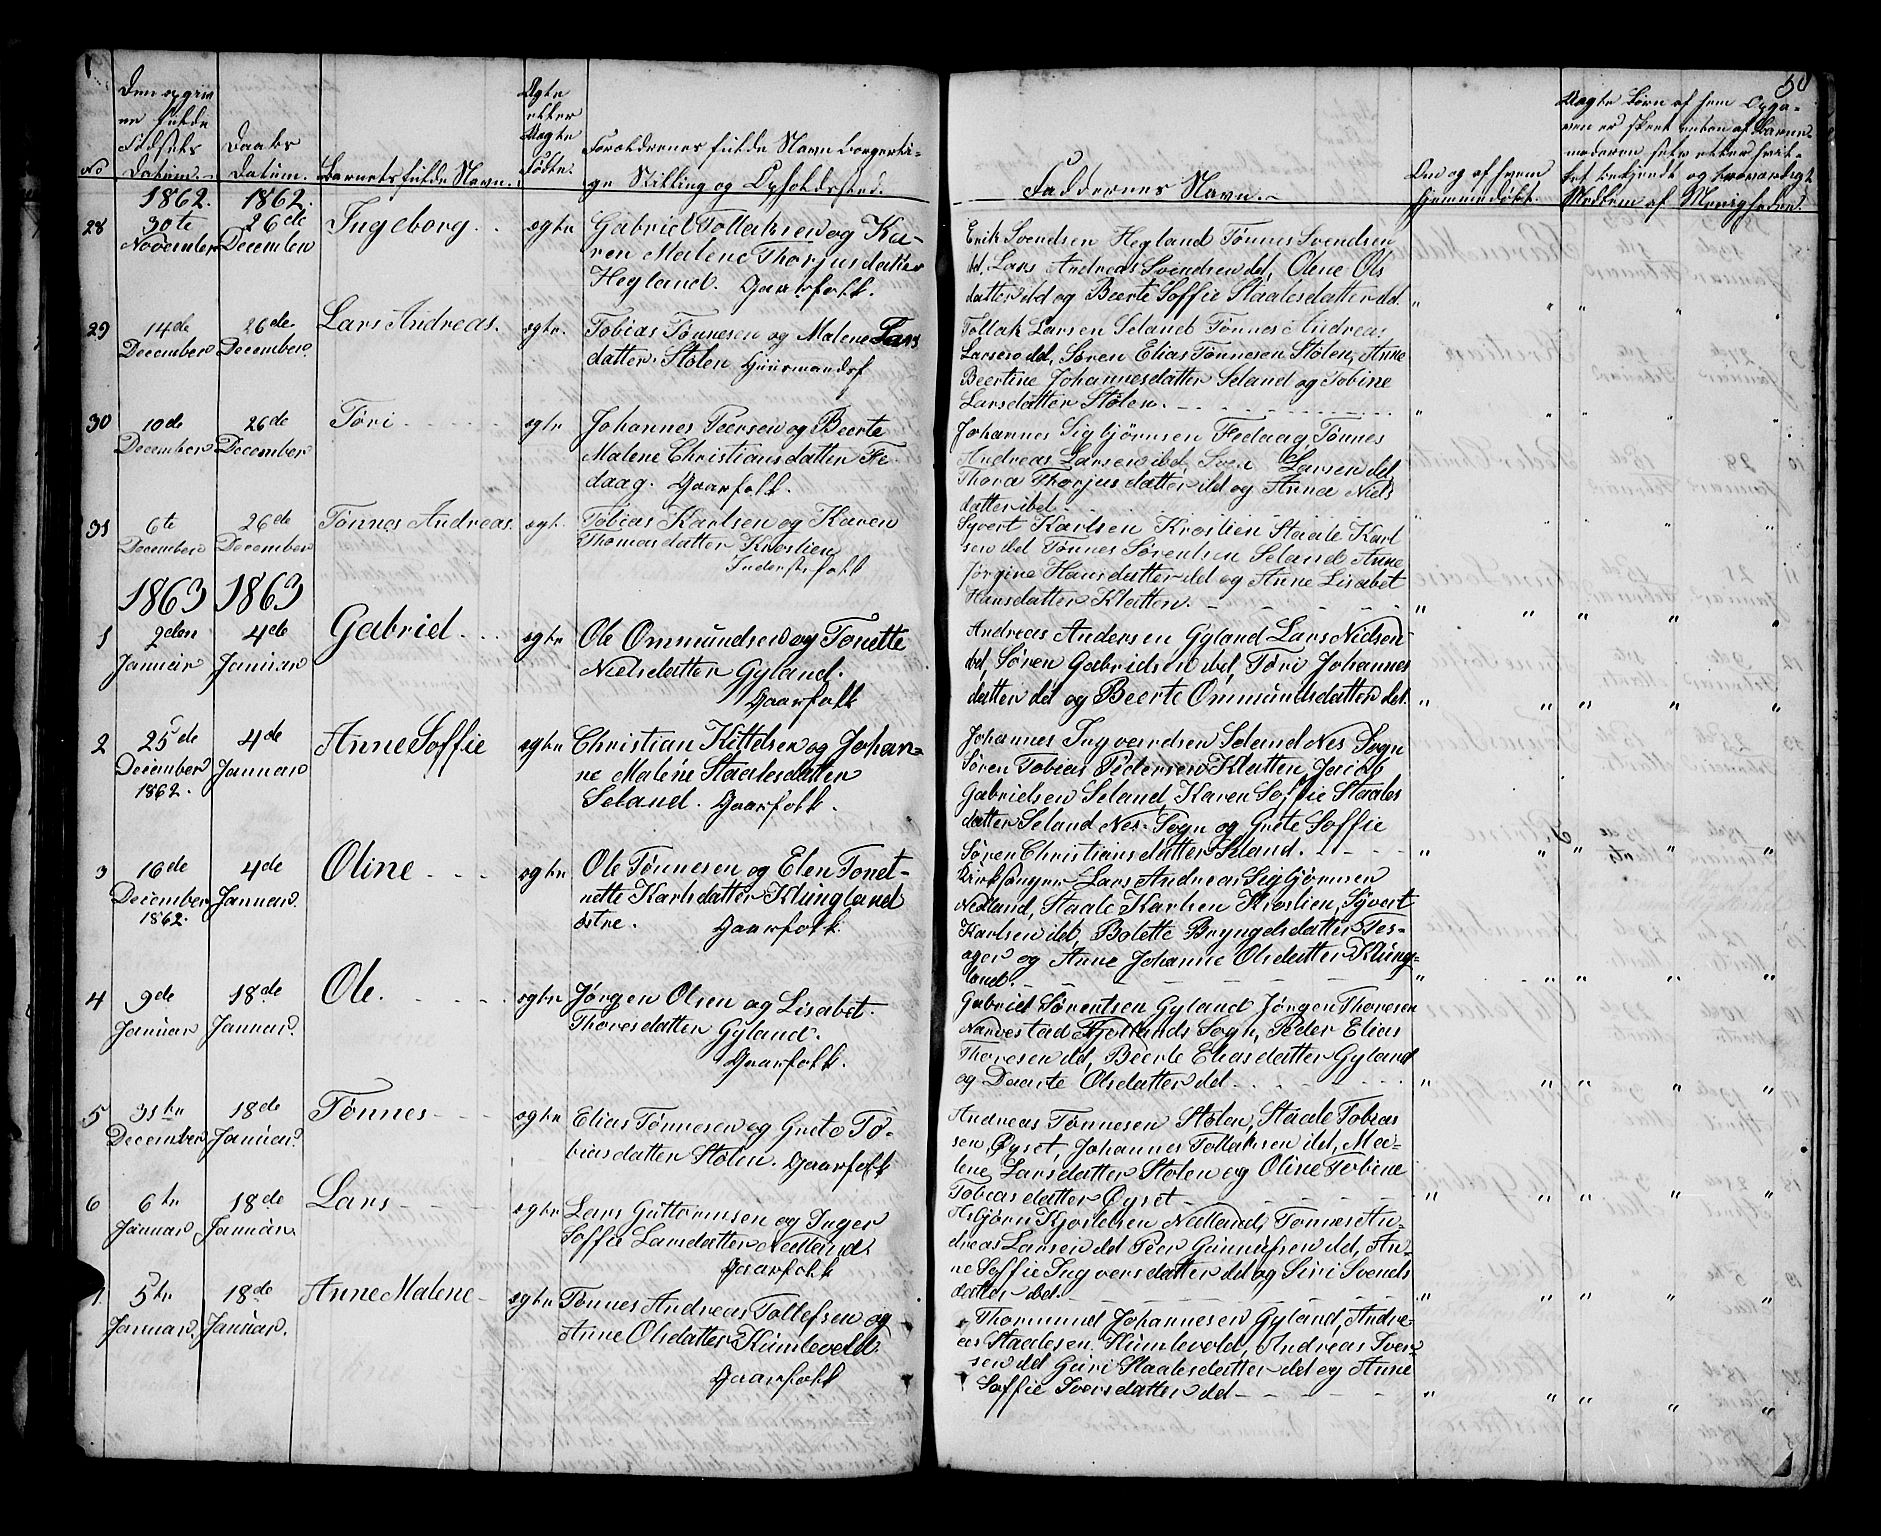 50
No
Den opgivne fulde Fødsels Datum.
Daabs Datum.
Barnets fulde Navn.
Ægte eller Uægte Fødte.
Forældrenes fulde Navn Borgerlige Stilling og Opholdssted.
Faddernes Navn.
Om og af hvem hjemmedøbt.
1862. 1862.
28 30te November 26de December Ingeborg. ægte
Gabriel Tollaksen og Karen Malene Thorjusdatter
Hegland. Gaarfolk.
Erik Svendsen Hegland Tønnes Svendsen
ibd, Lars Andreas Svendsen ibd, Olene Ols
datter ibd og Beerte Soffie Staalesdatter ibd. " " " "
29 14de December 26de December Lars Andreas. ægte.
Tobias Tønnesen og Malene Lars
datter Stölen Huusmandsf
Tollak Larsen Seland Tønnes Andreas
Larsen ibd, Søren Elias Tønnesen Stölen, Anne
Beertine Johannesdatter Seland og Tobine
Larsdatter Stölen. " " " "
30 10de December 26de December Töri ægte
Johannes Peersen og Beerte
Malene Christiansdatter Fe
daag. Gaarfolk.
Johannes Sigbjörnsen Fedaag, Tønnes
Andreas Larsen ibd, Sven Larsen ibd,
Thora Thorjusdatter ibd og Anna Niels
datter ibd. " " " "
31 6te December 26de December Tønnes Andreas. ægt.
Tobias Karlsen og Karen
Thomasdatter Krostien
Inderstfolk
Syvert Karlsen Krostien Staale Karl
sen ibd Tønnes Sørentsen Seland Anne
Jørgine Hansdatter ibd og Anne Lisabet
Hansdatter Klatten. " " " " "
1863 1863
1 2den Januar 4de Januar Gabriel. ægte
Ole Ommundsen og Tonette
Nielsdatter Gyland.
Gaarfolk
Andreas Andersen Gyland Lars Nielsen
ibd, Søren Gabrielsen ibd, Töri Johannes
datter ibd og Beerte Ommundsdatter ibd. " " " " "
2 25de December 1862. 4de Januar Anne Soffie ægte
Christian Kittelsen og Johan=
ne Malene Staalesdatter
Seland. Gaarfolk.
Johannes Ingvardsen Seland Nes Sogn
Søren Tobias Pedersen Klatten, Jacob
Gabrielsen Seland, Karen Soffie Staales
datter Seland Nes Sogn og Grete Soffie
Søren Christiansdatter Seland. " " " " "
3 16de December 1862. 4de Januar. Oline ægte
Ole Tønnesen og Elen Tonet=
nette Karlsdatter Klungland
østre. Gaarfolk.
Kirksanger Lars Andreas Sigbjørnsen
Nedland, Staale Karlsen Krostien, Syvert
Karlsen ibd, Bolette Bryngelsdatter Tes-
ager og Anne Johanne Olsdatter Klung=
land. " " " " "
4 9de Januar 18de Januar. Ole. ægte
Jørgen Olsen og Lisabet
Thoresdatter Gyland.
Gaarfolk.
Gabriel Sørentsen Gyland Jørgen Thoresen
Narvestad Fjotlands Sogn, Peder Elias
Thoresen ibd, Beerte Eliasdatter Gyland
og Daarte Olsdatter ibd. " " " " "
5 31te December 18de Januar. Tønnes ægte
Elias Tønnesen og Grete To-
biasdatter Stölen. Gaarfolk
Andreas Tønnesen Stölen, Staale Tobias
sen Øyset, Johannes Tollaksen ibd, Ma=
lene Larsdatter Stölen og Oline Tobine
Tobiasdatter Øyset " " " " "
6 6te Januar 18de Januar. Lars ægte
Lars Guttormsen og Inger
Soffie Larsdatter Nedland.
Gaarfolk
Asbjørn Kjostelsen Nedland, Tønnes An=
dreas Larsen ibd Peer Gunnufsen ibd, An=
ne Soffie Ingversdatter ibd og Siri Svends
datter ibd. " " " " "
7. 5te Januar. 18de Januar. Anne Malene ægte
Tønnes Andreas Tollefsen og
Anne Olsdatter Kumlevold
Gaarfolk
Thormund Johannesen Gyland, Andre=
as Staalesen Kumlevold, Andreas Iver=
sen ibd Guri Staalesdatter ibd og Anne
Soffie Iversdatter ibd " " " " "